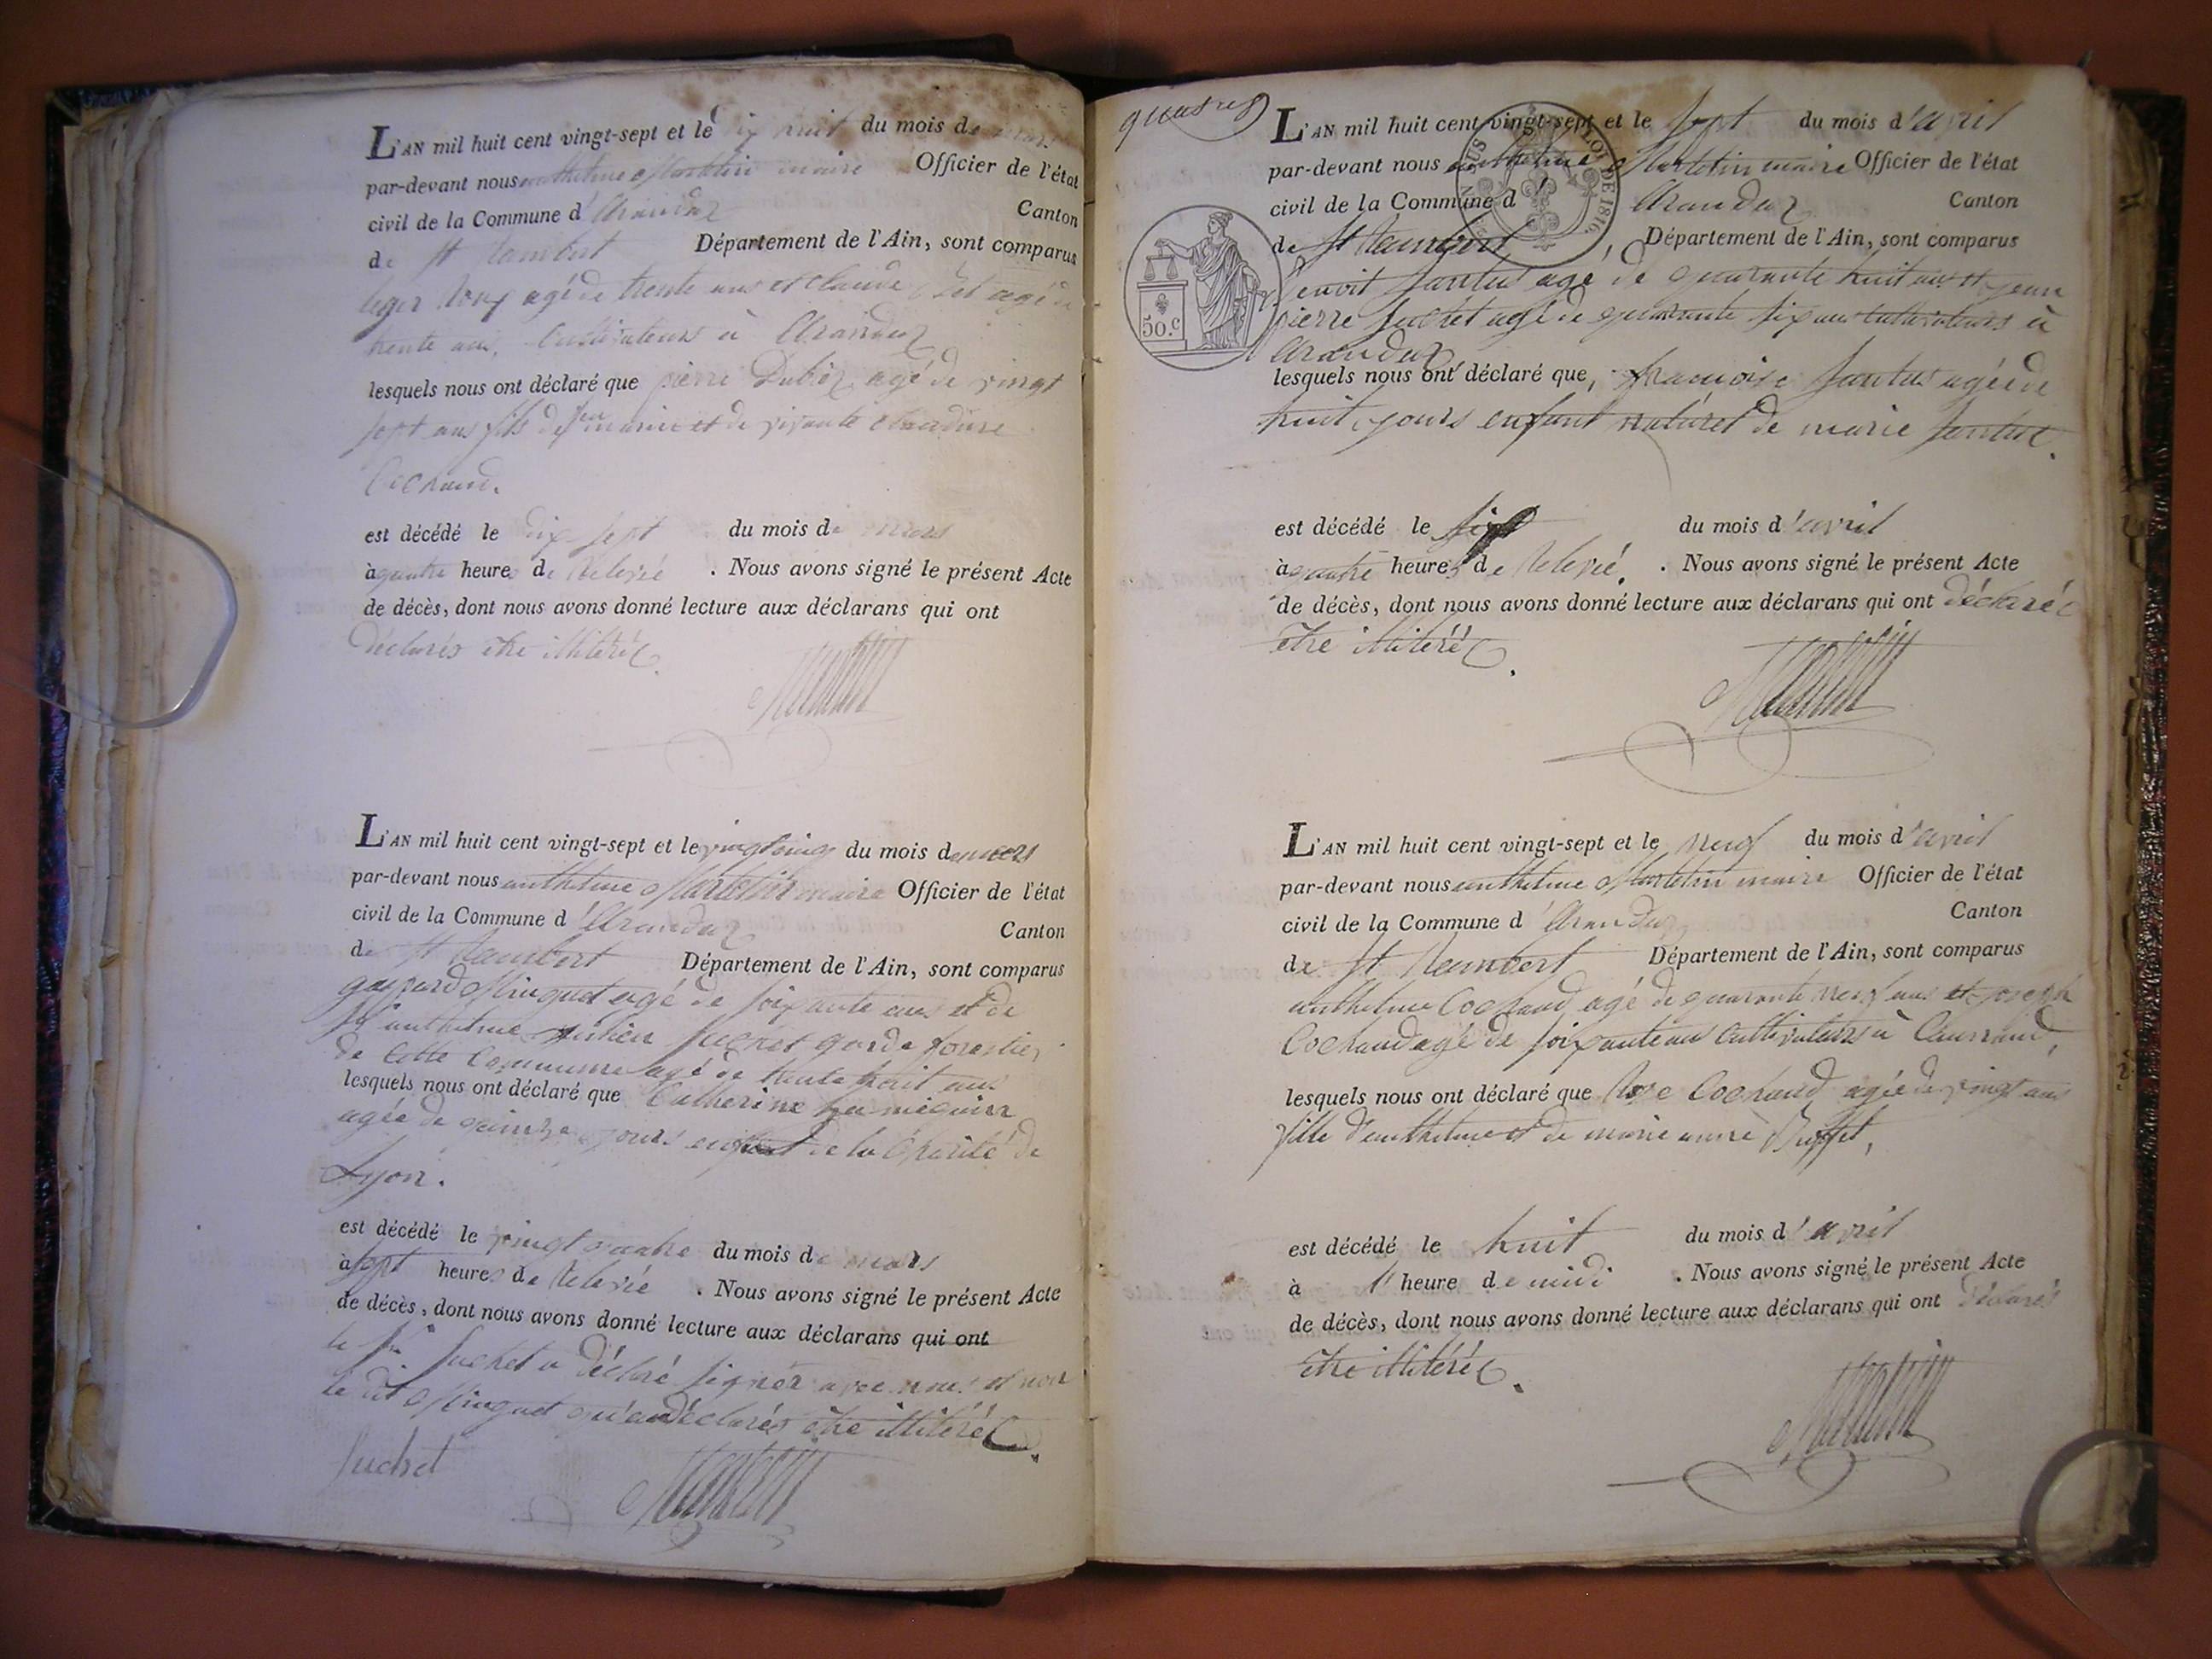 L'AN mil huit cent vingt-sept et le dix huit du mois de mars
par-devant nous anthelme Martelin maire Officier de l'état
civil de la Commune d'Arandaz Canton
de St Rambert Département de l'Ain, sont comparus
leger Roux agé de trente ans et claude agé de
trente ans, Cultivateurs à Arandaz
lesquels nous ont déclaré que pierre Dubiez agé de vingt
sept ans fils de feu marin et de vivante claudine
Cochaud.
est décédé le dix sept du mois de mars
à quatre heures de Relevée . Nous avons signé le présent Acte
de décès, dont nous avons donné lecture aux déclarans qui ont
déclarés être illitérés
L'AN mil huit cent vingt-sept et le vingt cinq du mois de mars
par-devant nous anthelme Martelin maire Officier de l'état
civil de la Commune d'Arandaz Canton
de St Rambert Département de l'Ain, sont comparus
gaspard Minguet agé de soixante ans et de
Sr anthelme julien Suchet garde forestier
de Cette Commune agé de trente huit ans
lesquels nous ont déclaré que Catherine
agée de quinze jours enfant de la Charité de
Lyon.
est décédé le vingt quatre du mois de mars
à sept heures de Relevée . Nous avons signé le présent Acte
de décès, dont nous avons donné lecture aux déclarans qui ont
le Sr Suchet a déclaré signer avec nous et non
le dit Minguet qu'a déclarés être illitérés.
Suchet Martelin
quatre
L'AN mil huit cent vingt-sept et le sept du mois d'avril
par-devant nous anthelme Martelin maire Officier de l'état
civil de la Commune d'Arandaz Canton
de St Rambert, Département de l'Ain, sont comparus
LOI DE 1816.
50.c
Benoit Santus agé de quarante huit ans et jean
pierre Suchet agé de quarante six ans Cultivateurs à
Arandaz
lesquels nous ont déclaré que, françoise Santus agée de
huit jours enfant naturel de marie Santus.
est décédé le six du mois d'avril
à quatre heures de Relevée. . Nous avons signé le présent Acte
de décès, dont nous avons donné lecture aux déclarans qui ont déclarés
être illitérés.
Martelin
L'AN mil huit cent vingt-sept et le neuf du mois d'avril
par-devant nous anthelme Martelin maire Officier de l'état
civil de la Commune d'Arandaz Canton
de St Rambert Département de l'Ain, sont comparus
anthelme Cochaud agé de quarante neuf ans et joseph
Cochaud agé de soixante ans cultivateurs à
lesquels nous ont déclaré que Rose Cochaud agée de vingt ans
fille d'anthelme et de marie anne Buffet,
est décédé le huit du mois d'avril
à l'heure de midi . Nous avons signé le présent Acte
de décès, dont nous avons donné lecture aux déclarans qui ont déclarés
être illitérés.
Martelin